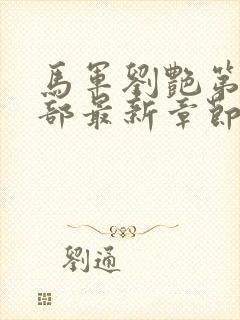 馬軍劉艷第
部最新章節
劉通